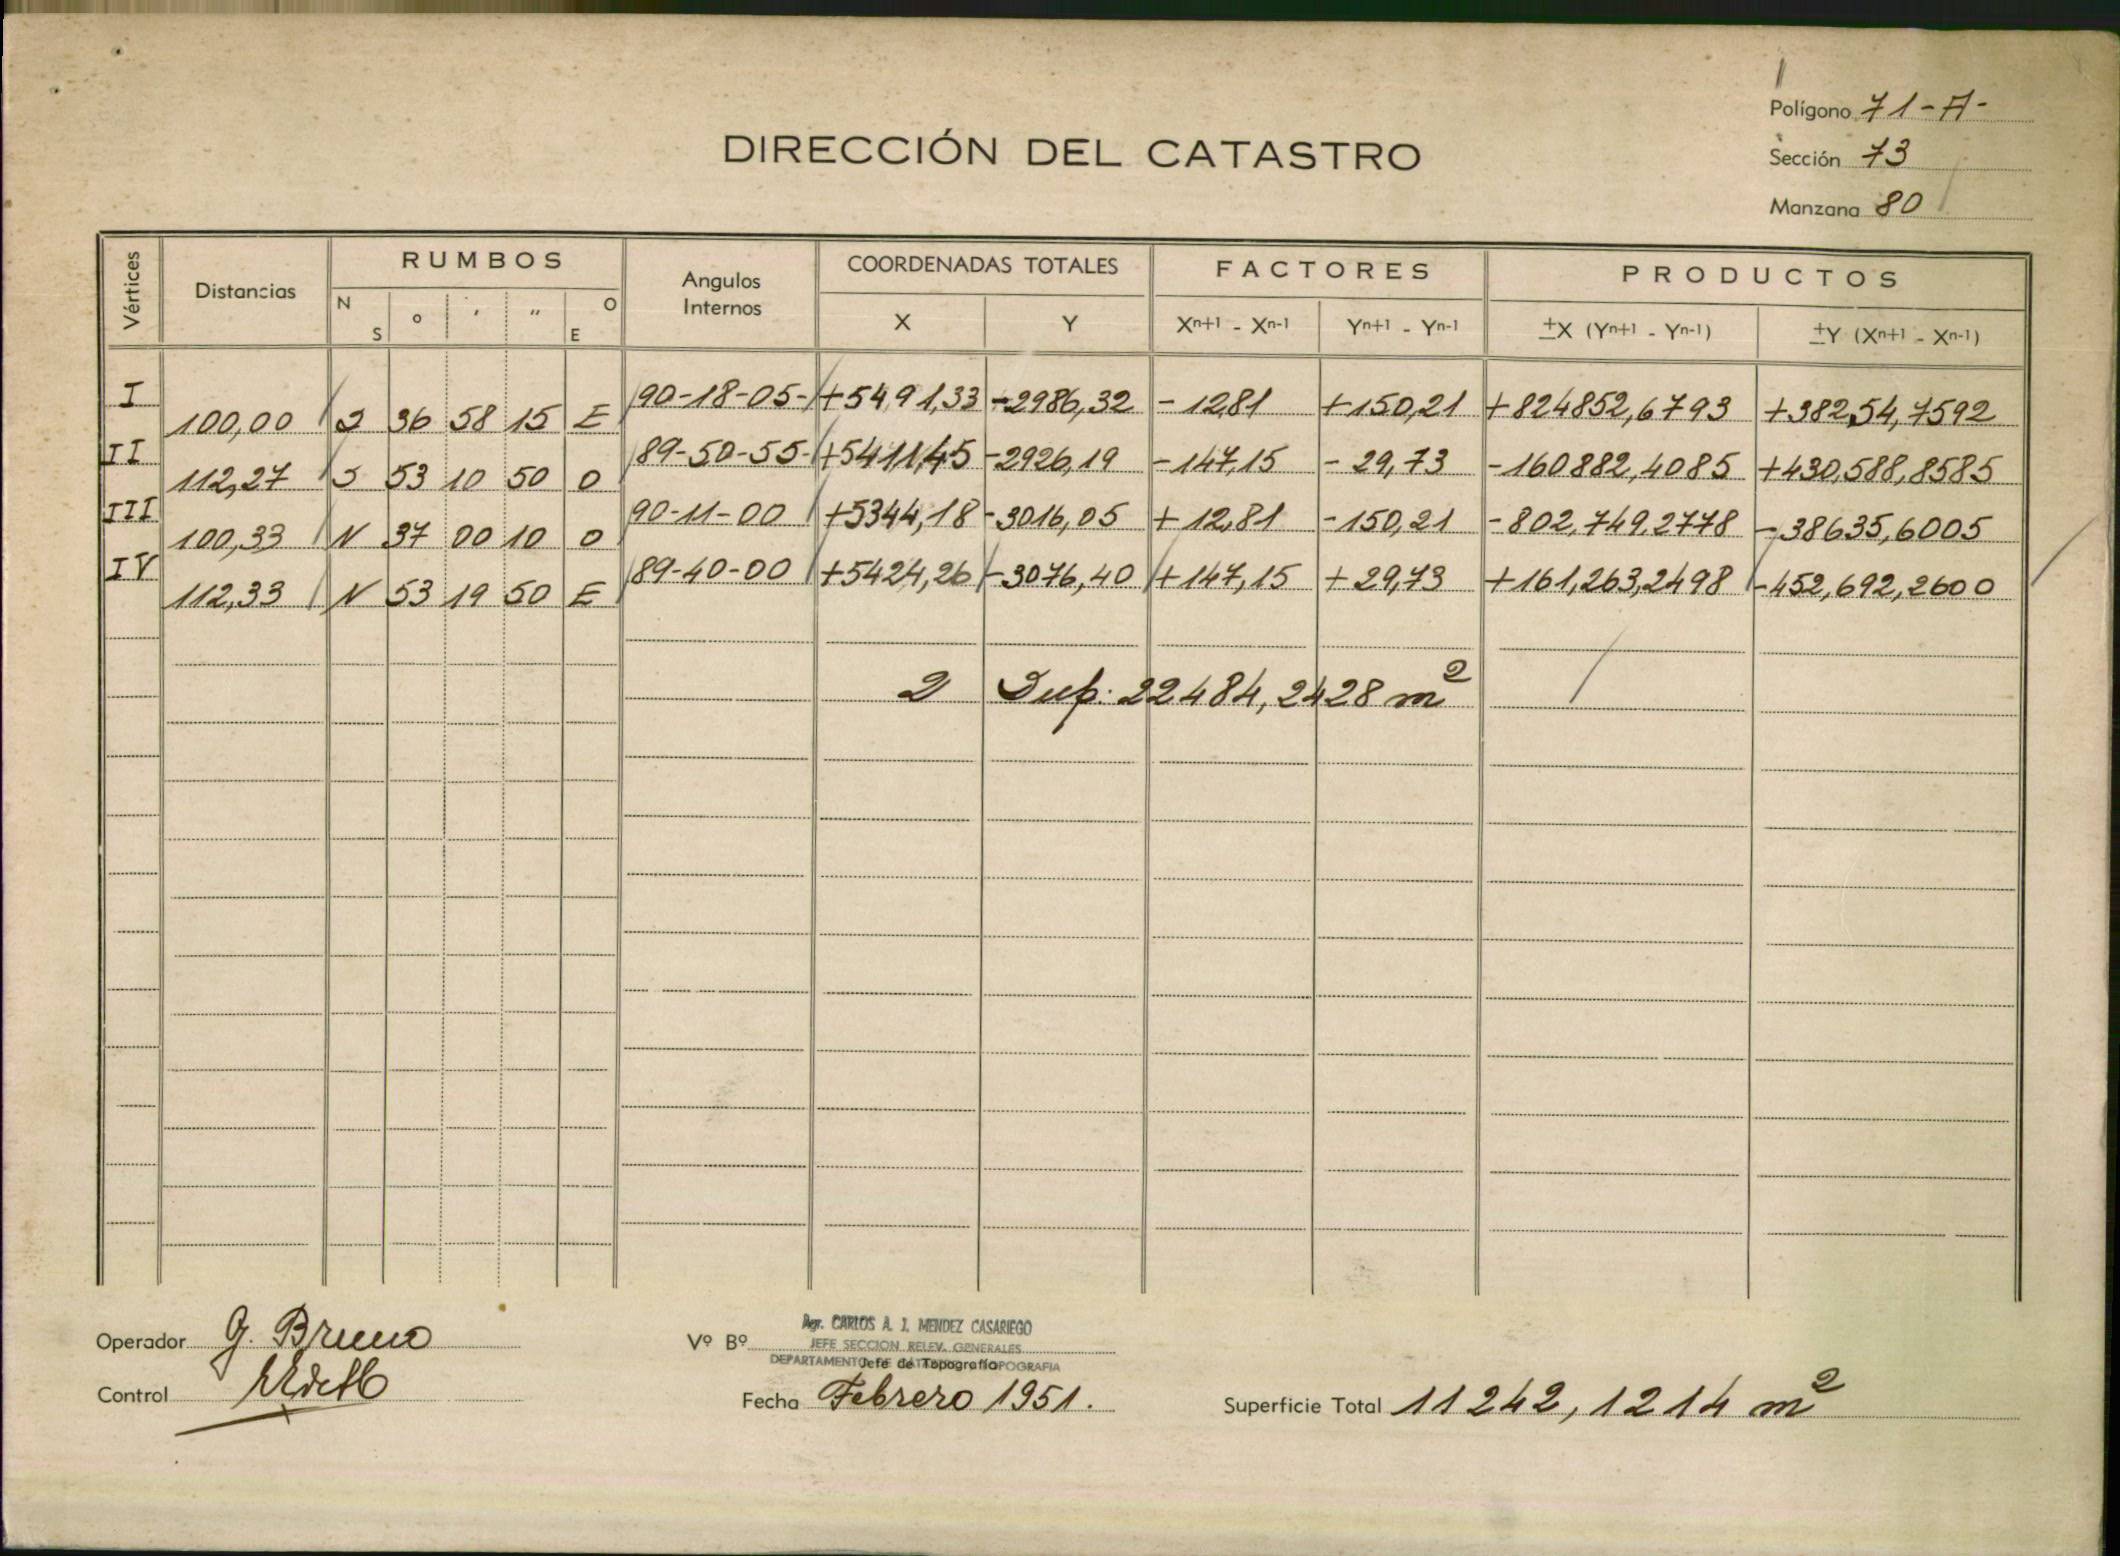 Polígono 71-A-
DIRECCIÓN DEL CATASTRO
Sección 73
Manzana 80
Vértices Distancias RUMBOS Angulos Internos COORDENADAS TOTALES FACTORES PRODUCTOS
N S o ' " O E X Y Xn+1 - Xn-1 Yn+1 - Yn-1 ±X (Yn+1 - Yn-1) ±Y (Xn+1 - Xn-1)
I 90-18-05- +5491,33 -2986,32 - 12,81 +150,21 +824852,6793 +38254,7592
100,00 S 36 58 15 E
II 89-50-55- +5411,45 -2926,19 -147,15 - 29,73 -160882,4085 +430,588,8585
112,27 S 53 10 50 O
III 90-11-00 +5344,18 -3016,05 + 12,81 -150,21 -802,749,2778 -38635,6005
100,33 N 37 00 10 O
IV 89-40-00 +5424,26 -3076,40 +147,15 +29,73 +161,263,2498 -452,692,2600
112,33 N 53 19 50 E
2 Sup: 22484,2428 m²
Operador G. Bruno
Vº Bº Agr. CARLOS A. J. MENDEZ CASARIEGO
JEFE SECCION RELEV. GENERALES
Jefe de Topografía
Control
Fecha Febrero 1951.
Superficie Total 11242,1214 m²